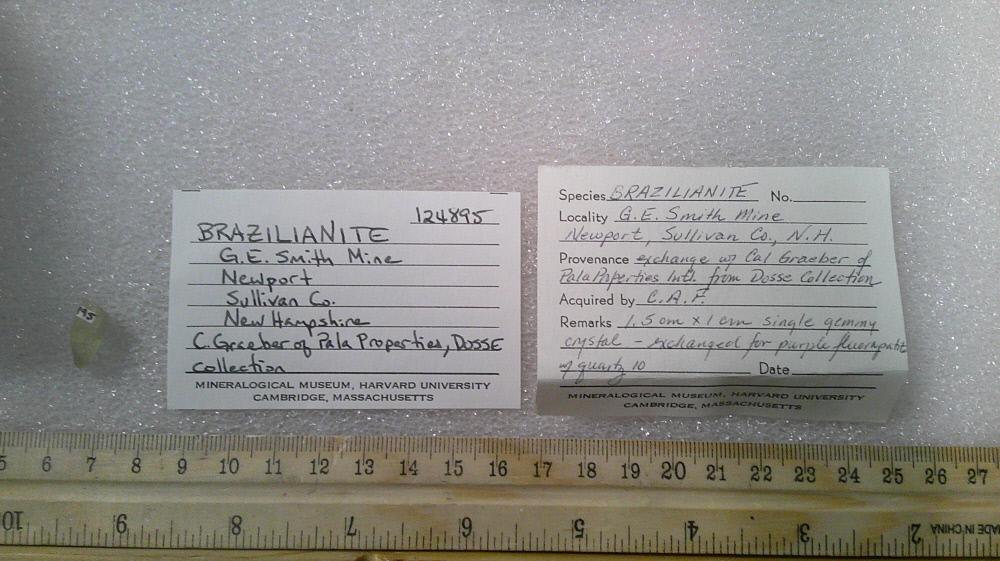 195
124895
BRAZILIANITE
G.E. Smith Mine
Newport
Sullivan Co.
New Hampshire
C. Graeber of Pala Properties, DOSSE
Collection
MINERALOGICAL MUSEUM, HARVARD UNIVERSITY
CAMBRIDGE, MASSACHUSETTS
Species BRAZILIANITE No.
Locality G.E. Smith Mine
Newport, Sullivan Co., N.H.
Provenance exchange w/ Cal Graeber of
Pala Properties Intl. from Dosse Collection
Acquired by C.A.F.
Remarks 1.5 cm x 1 cm single gemmy
crystal - exchanged for purple fluorapatite
w/ quartz 10 Date
MINERALOGICAL MUSEUM, HARVARD UNIVERSITY
CAMBRIDGE, MASSACHUSETTS
5 6 7 8 9 10 11 12 13 14 15 16 17 18 19 20 21 22 23 24 25 26 27
10 9 8 7 6 5 4 3 2 MADE IN CHINA